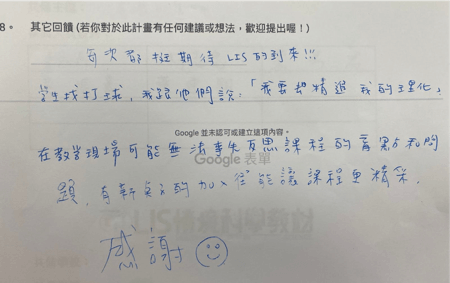 8。 其它回饋 (若你對於此計畫有任何建議或想法，歡迎提出喔！)
每次都挺期待 LIS 的到來!!!
學生找打球，我跟他們說：「我要想精進我的理化」
Google 並未認可或建立這項內容。
在教學現場可能無法事先反思課程的盲點和問
Google 表單
題，有新夥方的加入定能讓課程更精采。
感謝